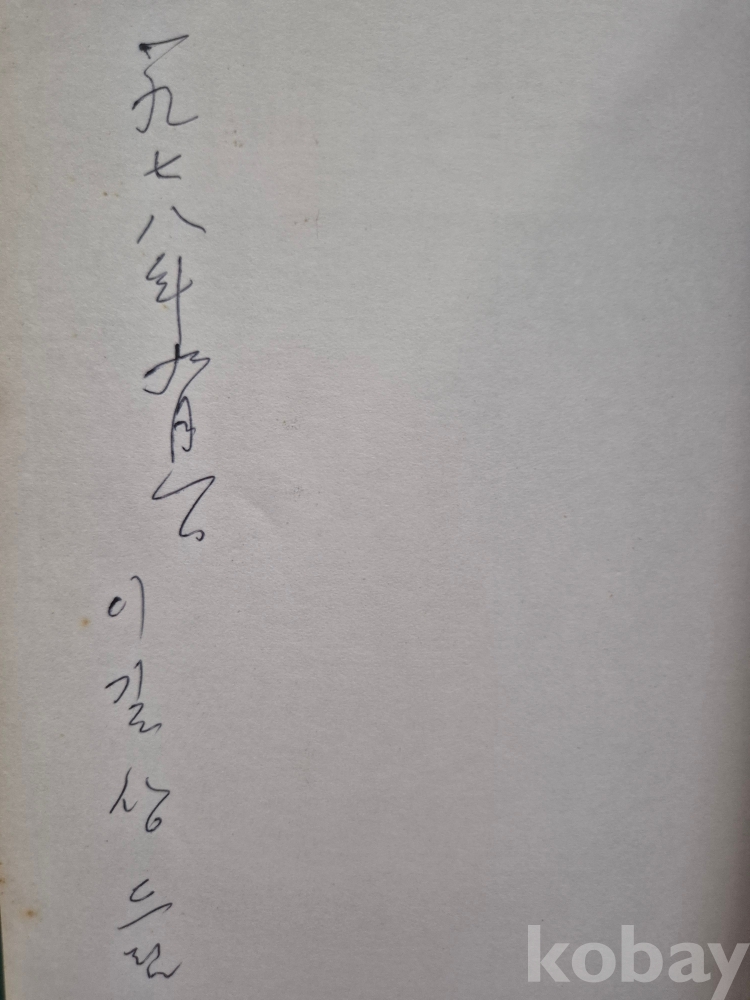 一九七八年九月
이길상
kobay